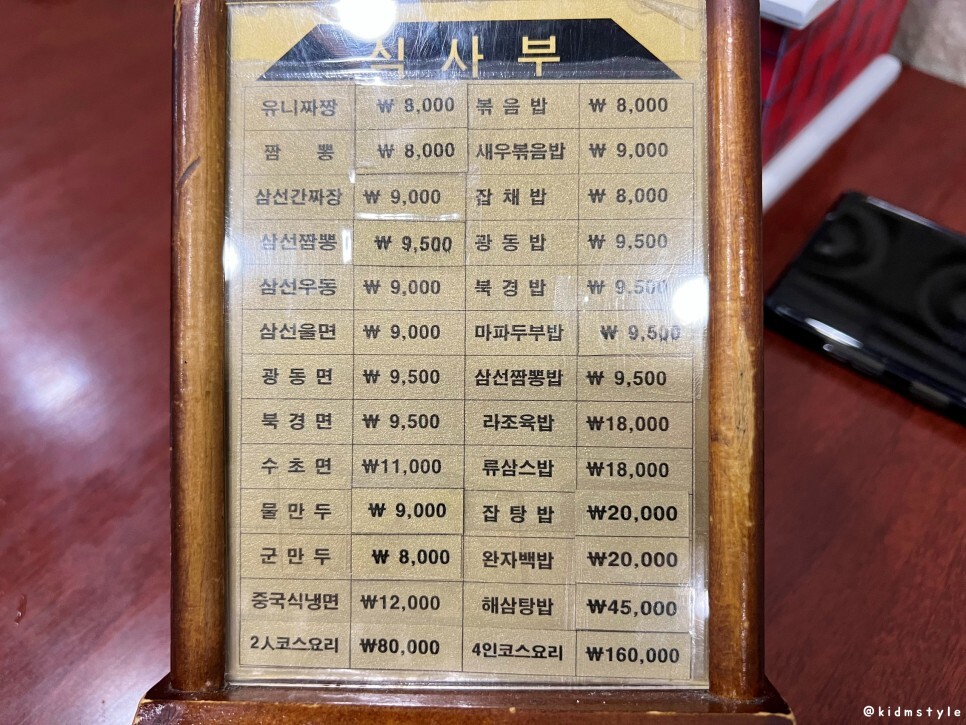 식사부
유니짜장 ₩ 8,000 볶음밥 ₩ 8,000
짬뽕 ₩ 8,000 새우볶음밥 ₩ 9,000
삼선간짜장 ₩ 9,000 잡채밥 ₩ 8,000
삼선짬뽕 ₩ 9,500 광동밥 ₩ 9,500
삼선우동 ₩ 9,000 북경밥 ₩ 9,500
삼선울면 ₩ 9,000 마파두부밥 ₩ 9,500
광동면 ₩ 9,500 삼선짬뽕밥 ₩ 9,500
북경면 ₩ 9,500 라조육밥 ₩18,000
수초면 ₩11,000 류삼스밥 ₩18,000
물만두 ₩ 9,000 잡탕밥 ₩20,000
군만두 ₩ 8,000 완자백밥 ₩20,000
중국식냉면 ₩12,000 해삼탕밥 ₩45,000
2人코스요리 ₩80,000 4인코스요리 ₩160,000
@kidmstyle